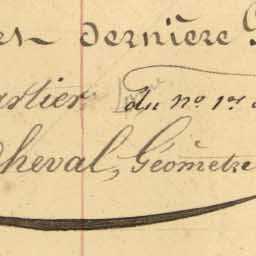 et dernière
artier du no. 1er
Cheval, Géomètre